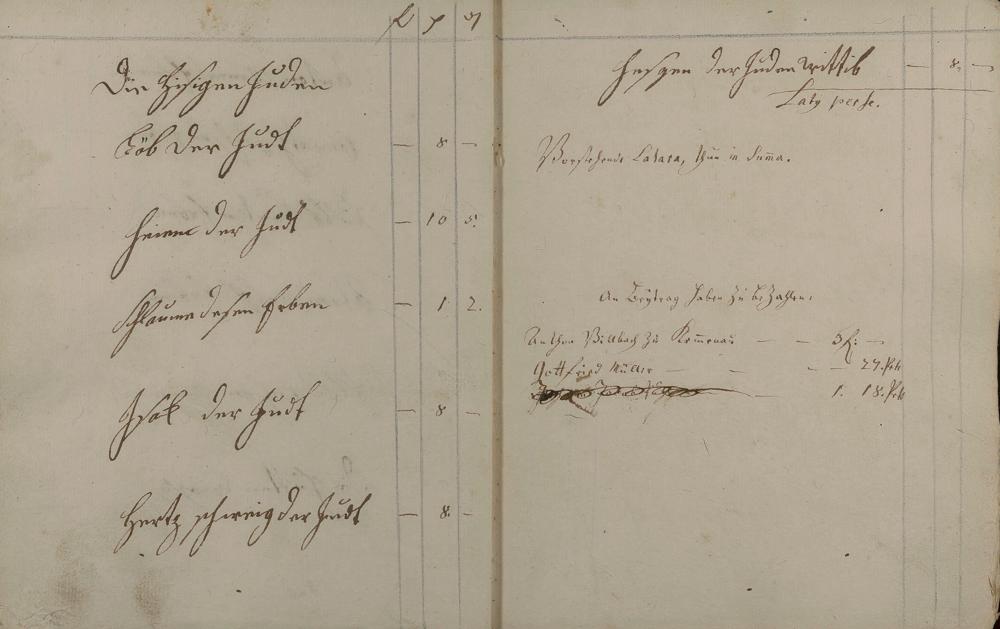 Die Hisigen Juden
Löb Der Judt — 8 —
heium der Judt — 10 5.
Schlaume desen Erben — 1 2.
Isak der Judt — 8 —
Hertz schweig der Judt — 8. —
hesgen der Juden wittib — 8. —
Laty per se.
Vorstehende Latara, thun in Summa.
An Beytrag haben zu bezahlen:
Anthon Billbach zu Kemmenau — — 3 f: —
Gottfried Müller — — — 27.
— 1. 18.